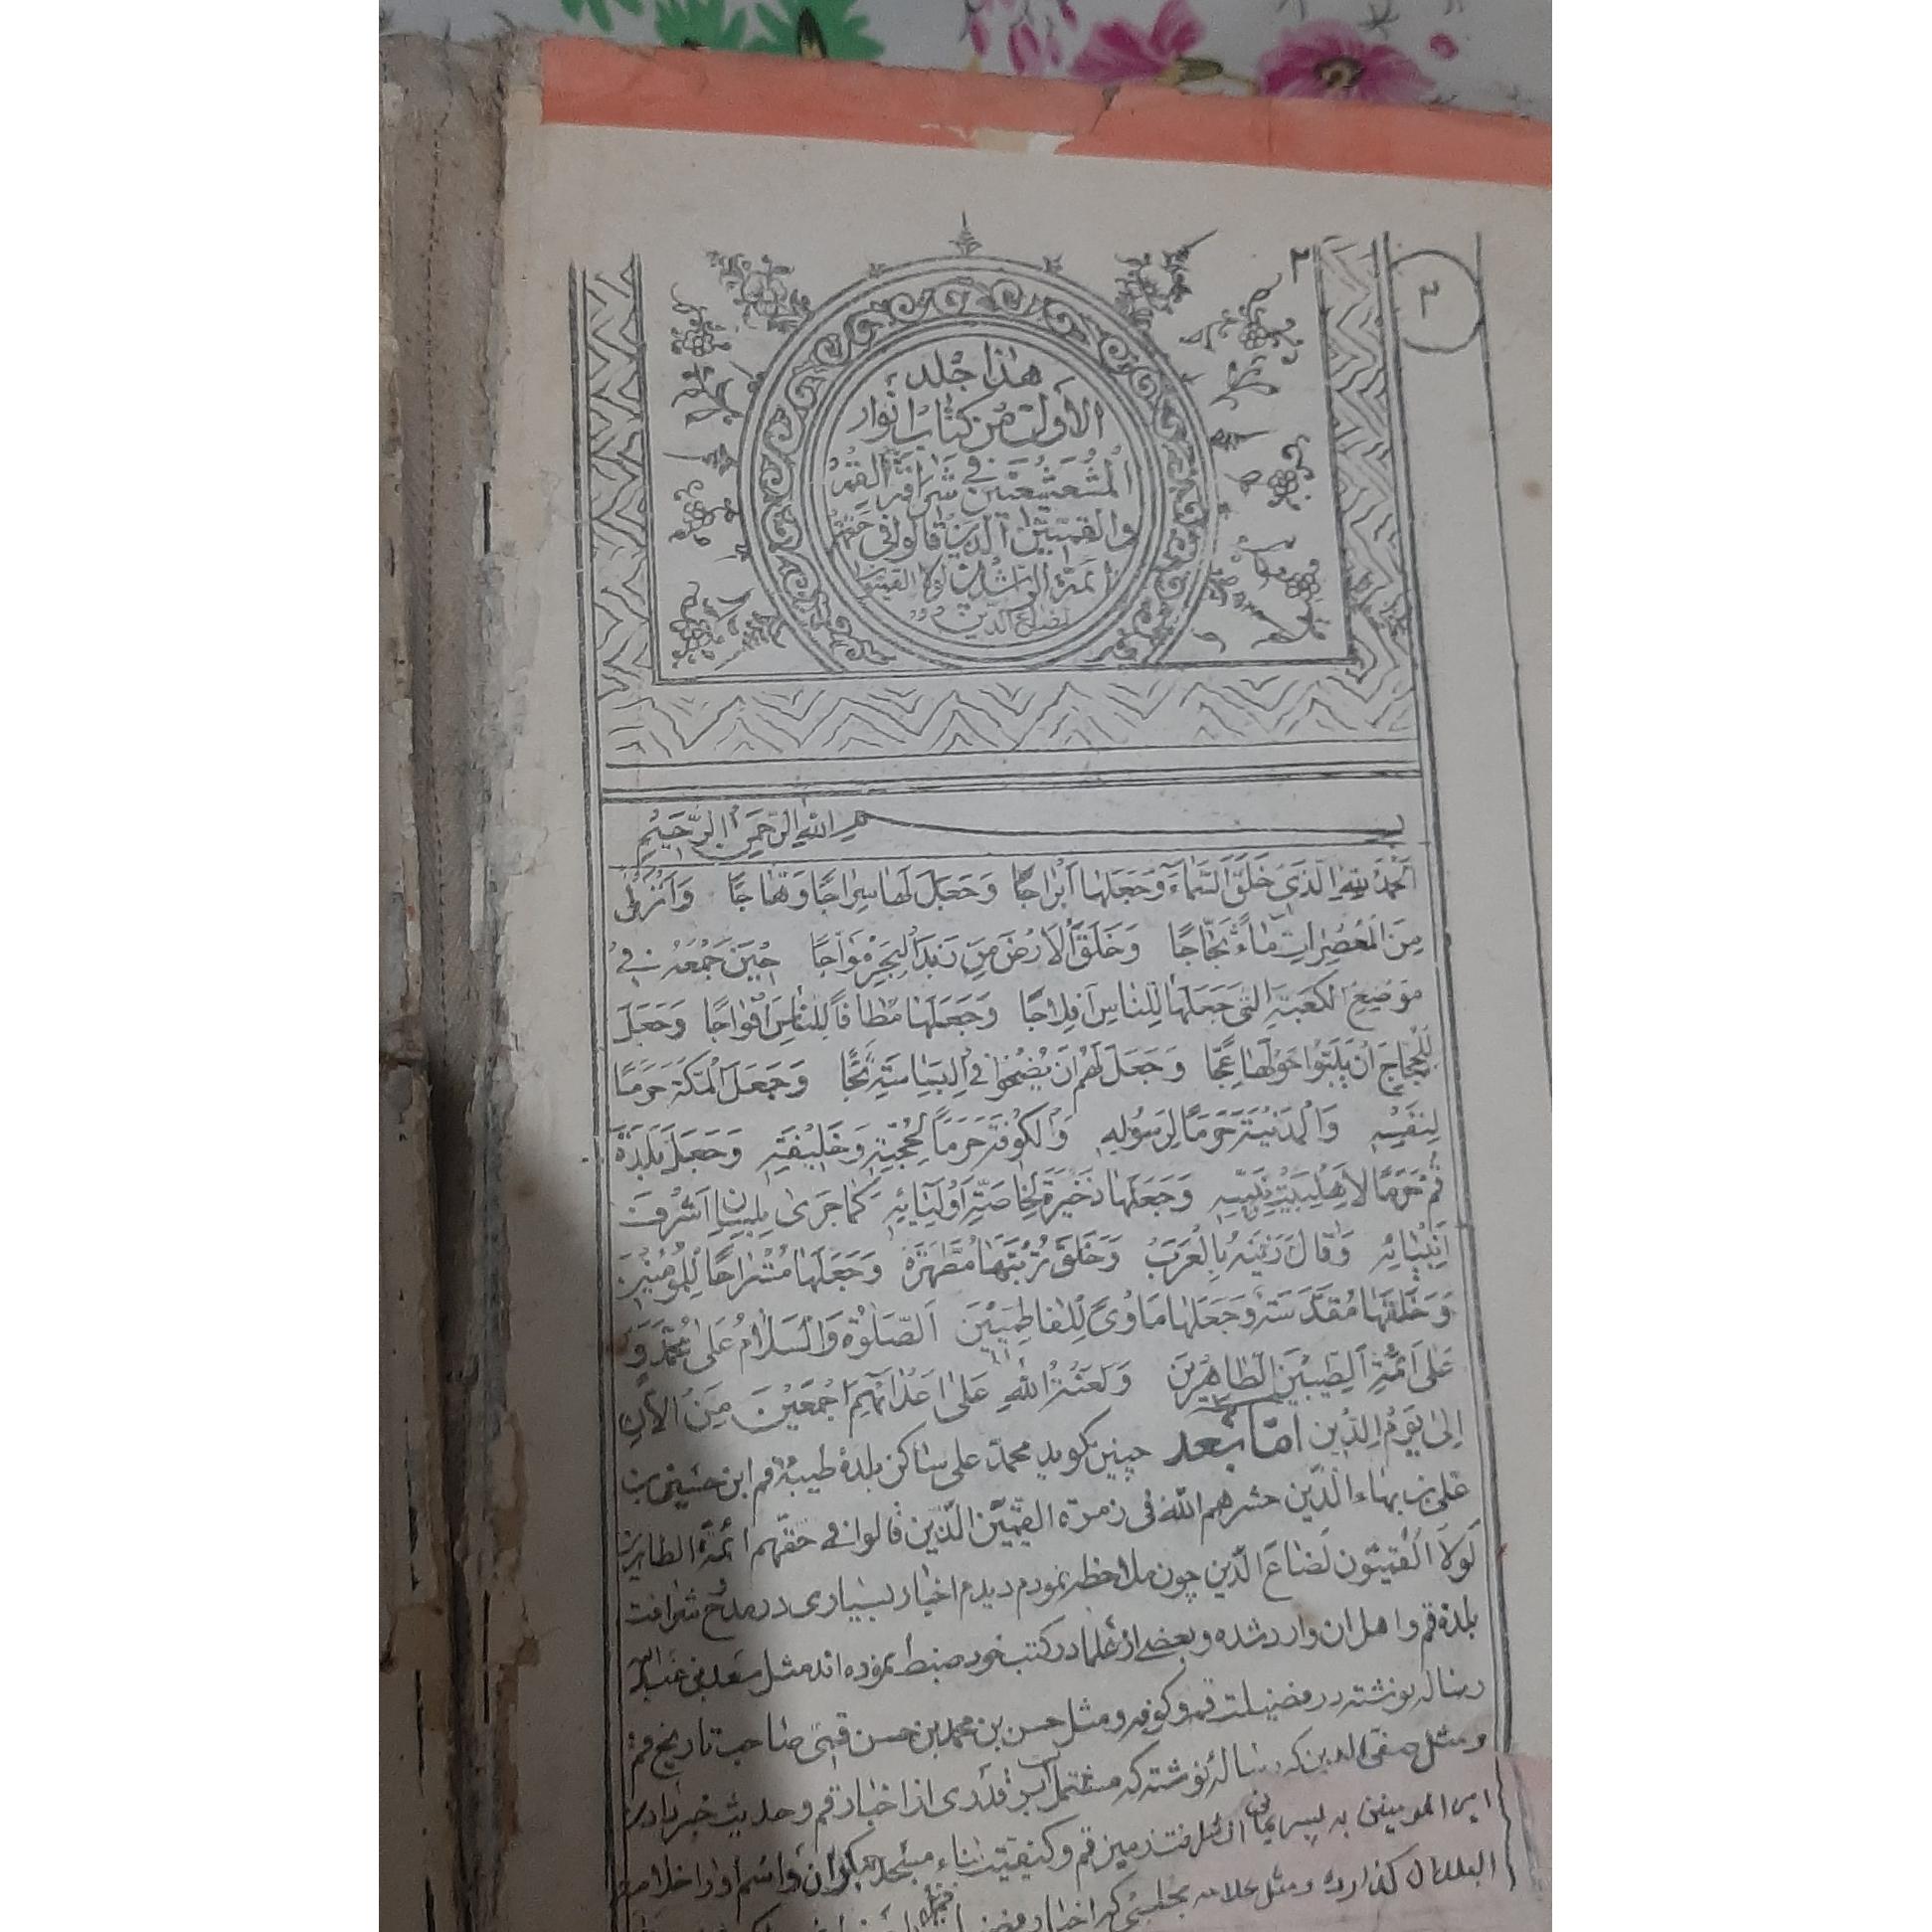 ٢
٢
هذا جلد
الاول من كتاب انوار
المشعشعين في شرافة القم
والقميين الذين قالوا في حقهم
ائمة الراشدين لولا القميون
لضاع الدين
بسم الله الرحمن الرحيم
اَلحمدُ لِلّهِ الَّذي خَلَقَ السَّماءَ وَجَعَلَها اَبْراجًا وَجَعَلَ لَها سِراجًا وَهّاجًا وَاَنْزَلَ
مِنَ المُعْصِراتِ ماءً ثَجّاجًا وَخَلَقَ الاَرْضَ مِن زَبَدِ البَحْرِ مَوّاجًا حينَ جَمَعَهُ في
مَوضِعِ الكَعبَةِ الَّتي جَعَلَها لِلنّاسِ اَفلاجًا وَجَعَلَها مَطافًا لِلنّاسِ اَفْواجًا وَجَعَلَ
لِلحُجّاجِ اَنْ يُلَبّوُا حَولَها عَجًّا وَجَعَلَ لَهُم اَن يُضَحّوا في ثَجًّا وَجَعَلَ المَكَّةَ حَرَمًا
لِنَفسِهِ وَالمَدينَةَ حَرَمًا لِرَسُولِهِ وَالكُوفَةَ حَرَمًا لِحُجَّتِهِ وَخَليفَتِهِ وَجَعَلَ بَلَدَةَ
قُمَّ حَرَمًا لِاَهلِبَيتِ نَبِيِّهِ وَجَعَلَها ذَخيرَةً لِخاصَّةِ اَوْلِيائِهِ كَما جَرى بِلِسانِ اَشْرَفِ
اَنبِيائِهِ وَقالَ بِالعَرَبِ وَخَلَقَ تُرْبَتَها مُطَهَّرَةً وَجَعَلَها لِلمُؤْمِنينَ
وَخَلَقَها مُقَدَّسَةً وَجَعَلَها مَأوىً لِلفاطِمِيّينَ اَلصَّلوةُ وَالسَّلامُ عَلى مُحَمَّدٍ وَ
عَلى اَئِمَّةِ الطَّيِّبينَ الطّاهِرينَ وَلَعنَةُ اللهِ عَلى اَعْدائِهِم اَجْمَعينَ مِنَ الآنِ
اِلى يَومِ الدّينِ امّا بعد چنين گويد محمد على ساكن بلدۀ طيبۀ قم ابن حسين بن
على بن بهاء الدّين حشرهم الله فى زمرة القمّيّين الّذين قالوا فى حقّهم ائمّة الطاهرين
لَولاَ القُمّيّون لَضاعَ الدّين چون ملاحظه نمودم ديدم اخبار بسيارى در مدح و شرافت
بلدۀ قم و اهل ان وارد شده و بعضى از علما در كتب خود ضبط نموده اند مثل سعد بن عبدالله
رساله نوشته در فضيلت قم و كوفه و مثل حسن بن محمد بن حسن قمى صاحب تاريخ قم
و مثل صفى الدين كه رساله نوشته كه مشتمل بر قدرى از اخبار قم و حديث خبر دادن
امير المومنين به پسر يمانى از شرافت زمين قم و كيفيت بناء مسجد جمكران و اسم او را خلاصة
البلدان گذارده و مثل علامه مجلسى كه اخبار